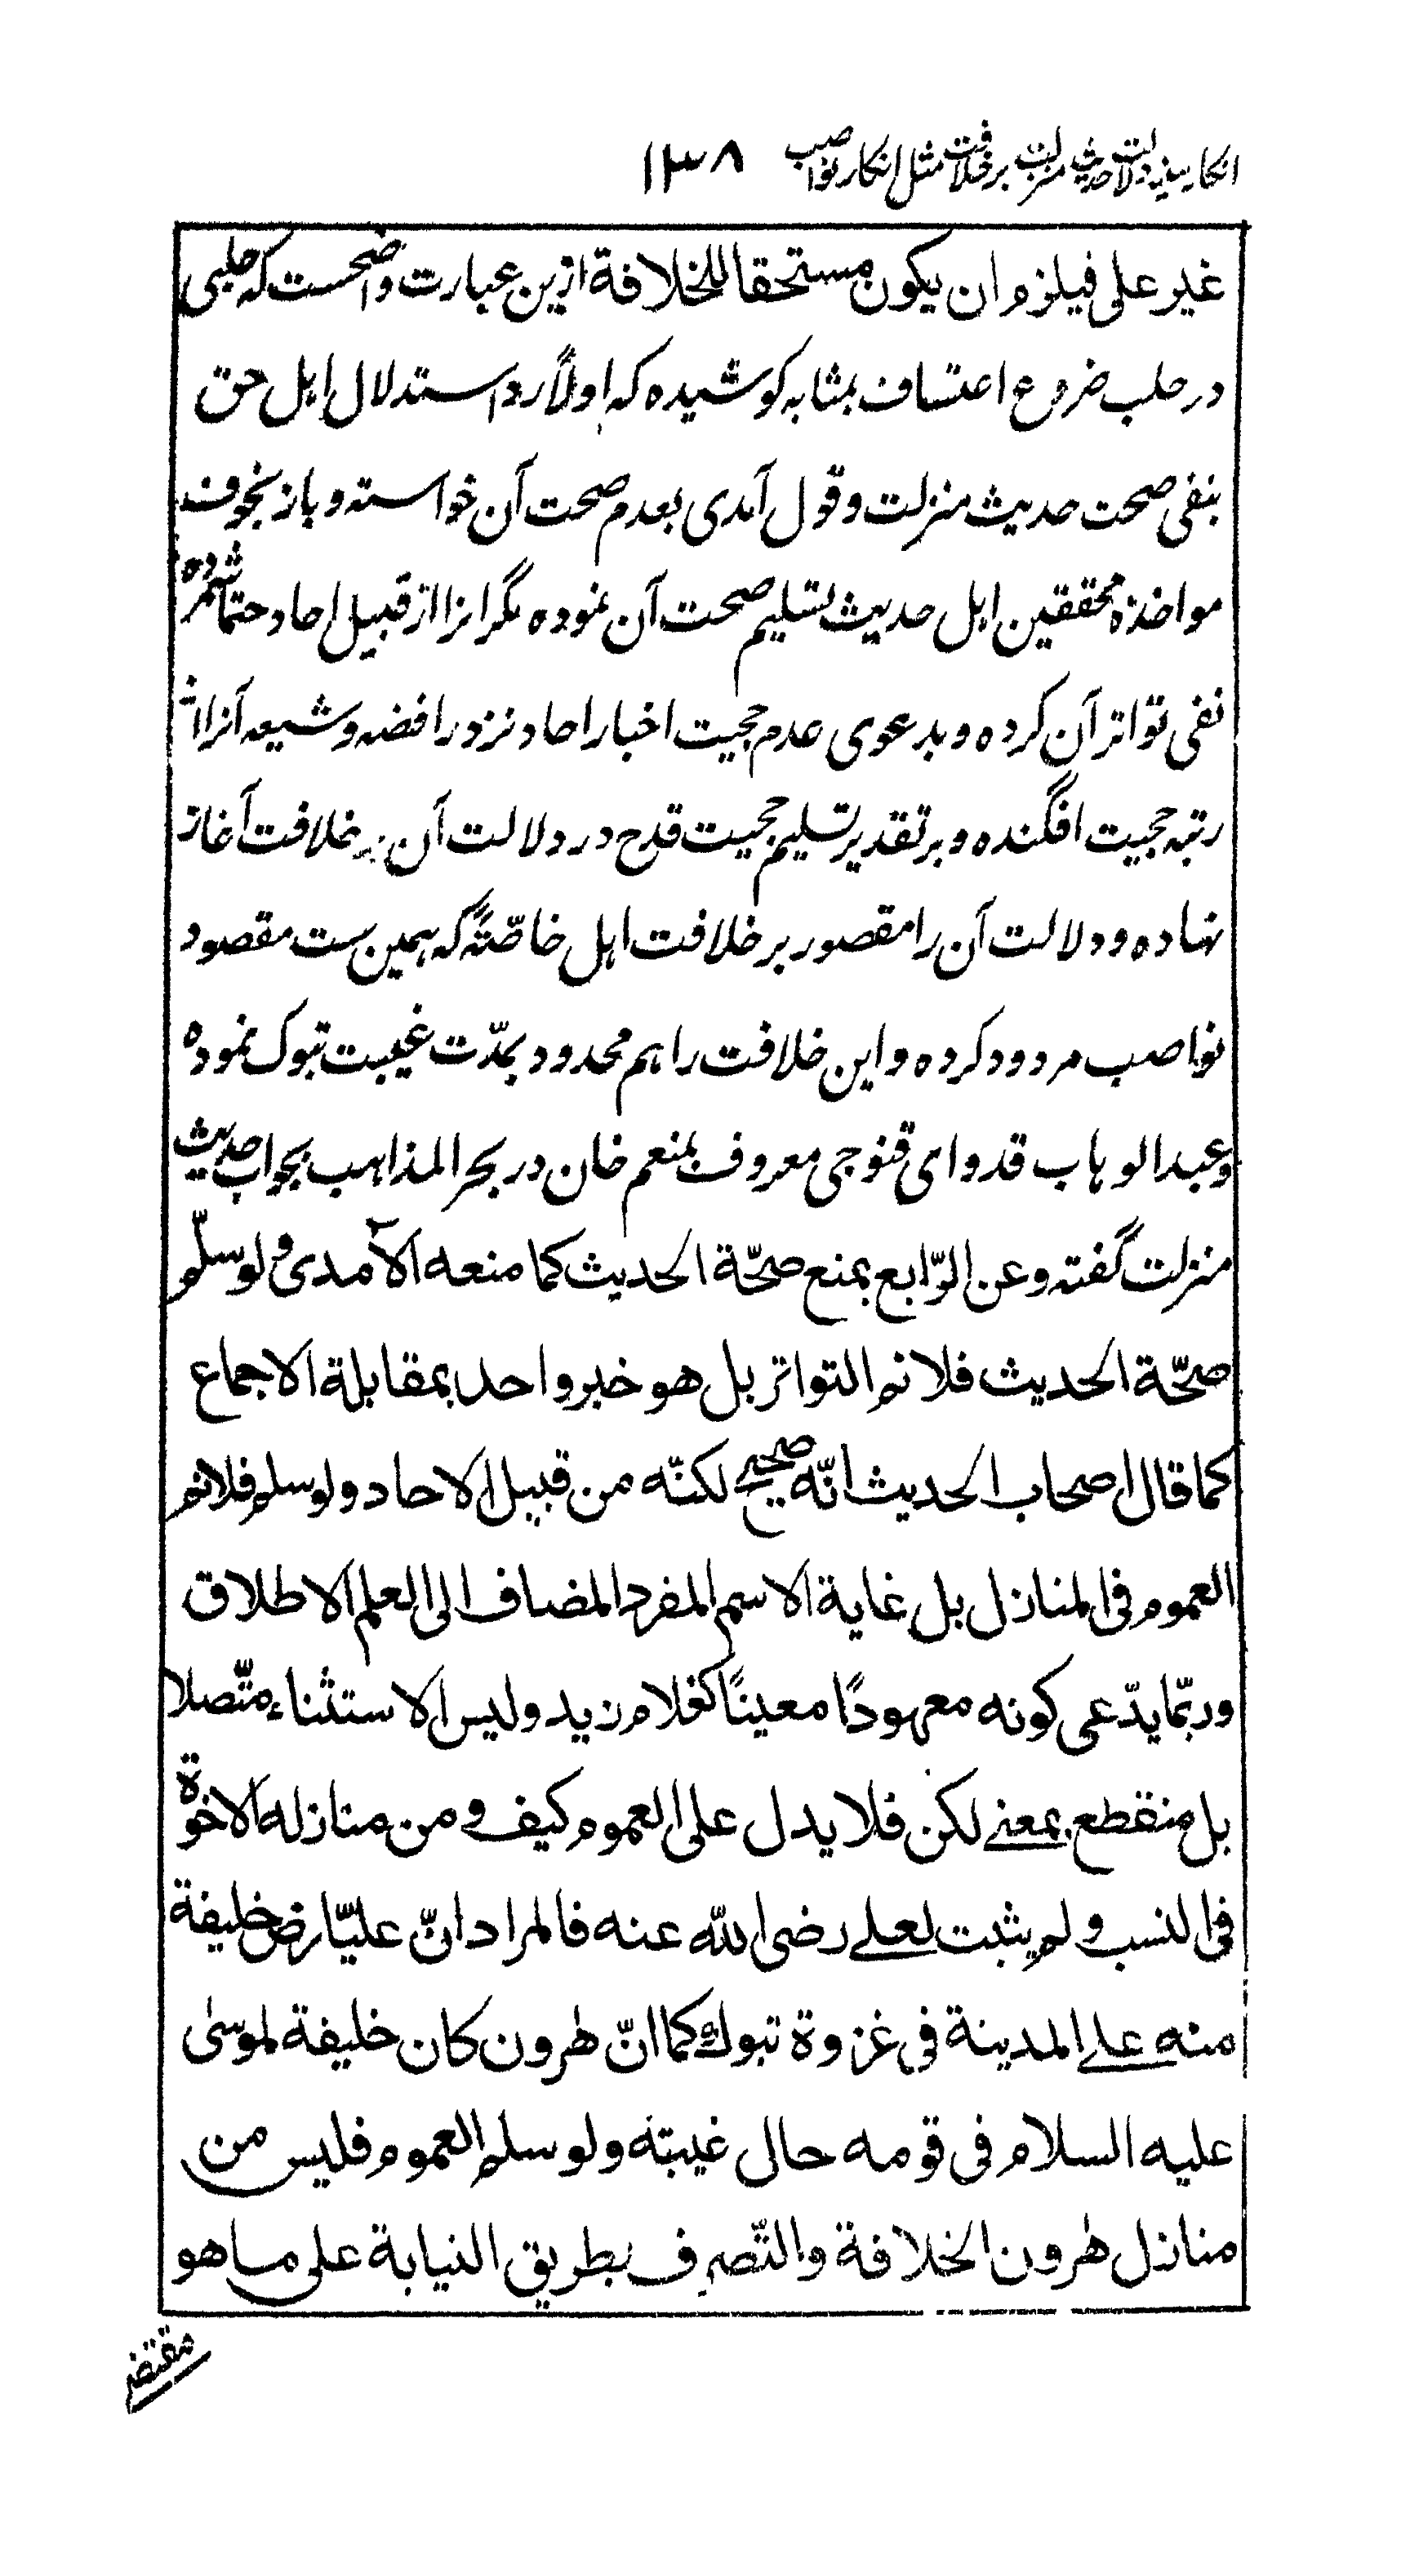 انکار سنیه دلالت حدیث منزلت بر خلافت مثل انکار نواصب ۱۳۸
غیر علی فیلزم ان یکون مستحقا للخلافة ازین عبارت واضحست که حلبی
در حلب ضروع اعتساف بمثابه کوشیده که اولاً رد استدلال اهل حق
بنفی صحت حدیث منزلت و قول آمدی بعدم صحت آن خواسته و باز بخوف
مواخذهٔ محققین اهل حدیث تسلیم صحت آن نموده مگر انرا از قبیل احاد حتما شمرده
نفی تواتر آن کرده و بدعوی عدم حجیت اخبار احاد نزد رافضه و شیعه آنرا از
رتبه حجیت افگنده و بر تقدیر تسلیم حجیت قدح در دلالت آن بر خلافت آغاز
نهاده و دلالت آن را مقصور بر خلافت اهل خاصّتهً که همین ست مقصود
نواصب مردود کرده و این خلافت را هم محدود بمدّت غیبت تبوک نموده
و عبدالوهاب قدوای قنوجی معروف بمنعم خان در بحر المذاهب بجواب حدیث
منزلت گفته وعن الرّابع بمنع صحّة الحدیث کما منعه الآمدی و لو سلّم
صحّة الحدیث فلا نم التواتر بل هو خبر واحد بمقابلة الاجماع
کما قال اصحاب الحدیث انّه صحیح لکنّه من قبیل الاحاد ولو سلم فلا نم
العموم فی المنازل بل غایة الاسم المفرد المضاف الی العلم الاطلاق
وربّما یدّعی کونه معهودًا معینًا کغلام زید ولیس الاستثناء متّصلا
بل منقطع بمعنے لکن فلا یدل علی العموم کیف و من منازله الاخوّة
فی النسب و لم یثبت لعلے رضی الله عنه فالمراد انّ علیّا رض خلیفة
منه علے المدینة فی غزوة تبوک کما انّ هرون کان خلیفة لموسیٰ
علیه السلام فی قومه حال غیبته ولو سلم العموم فلیس من
منازل هرون الخلافة والتّصرف بطریق النیابة علی ما هو
مقتضے